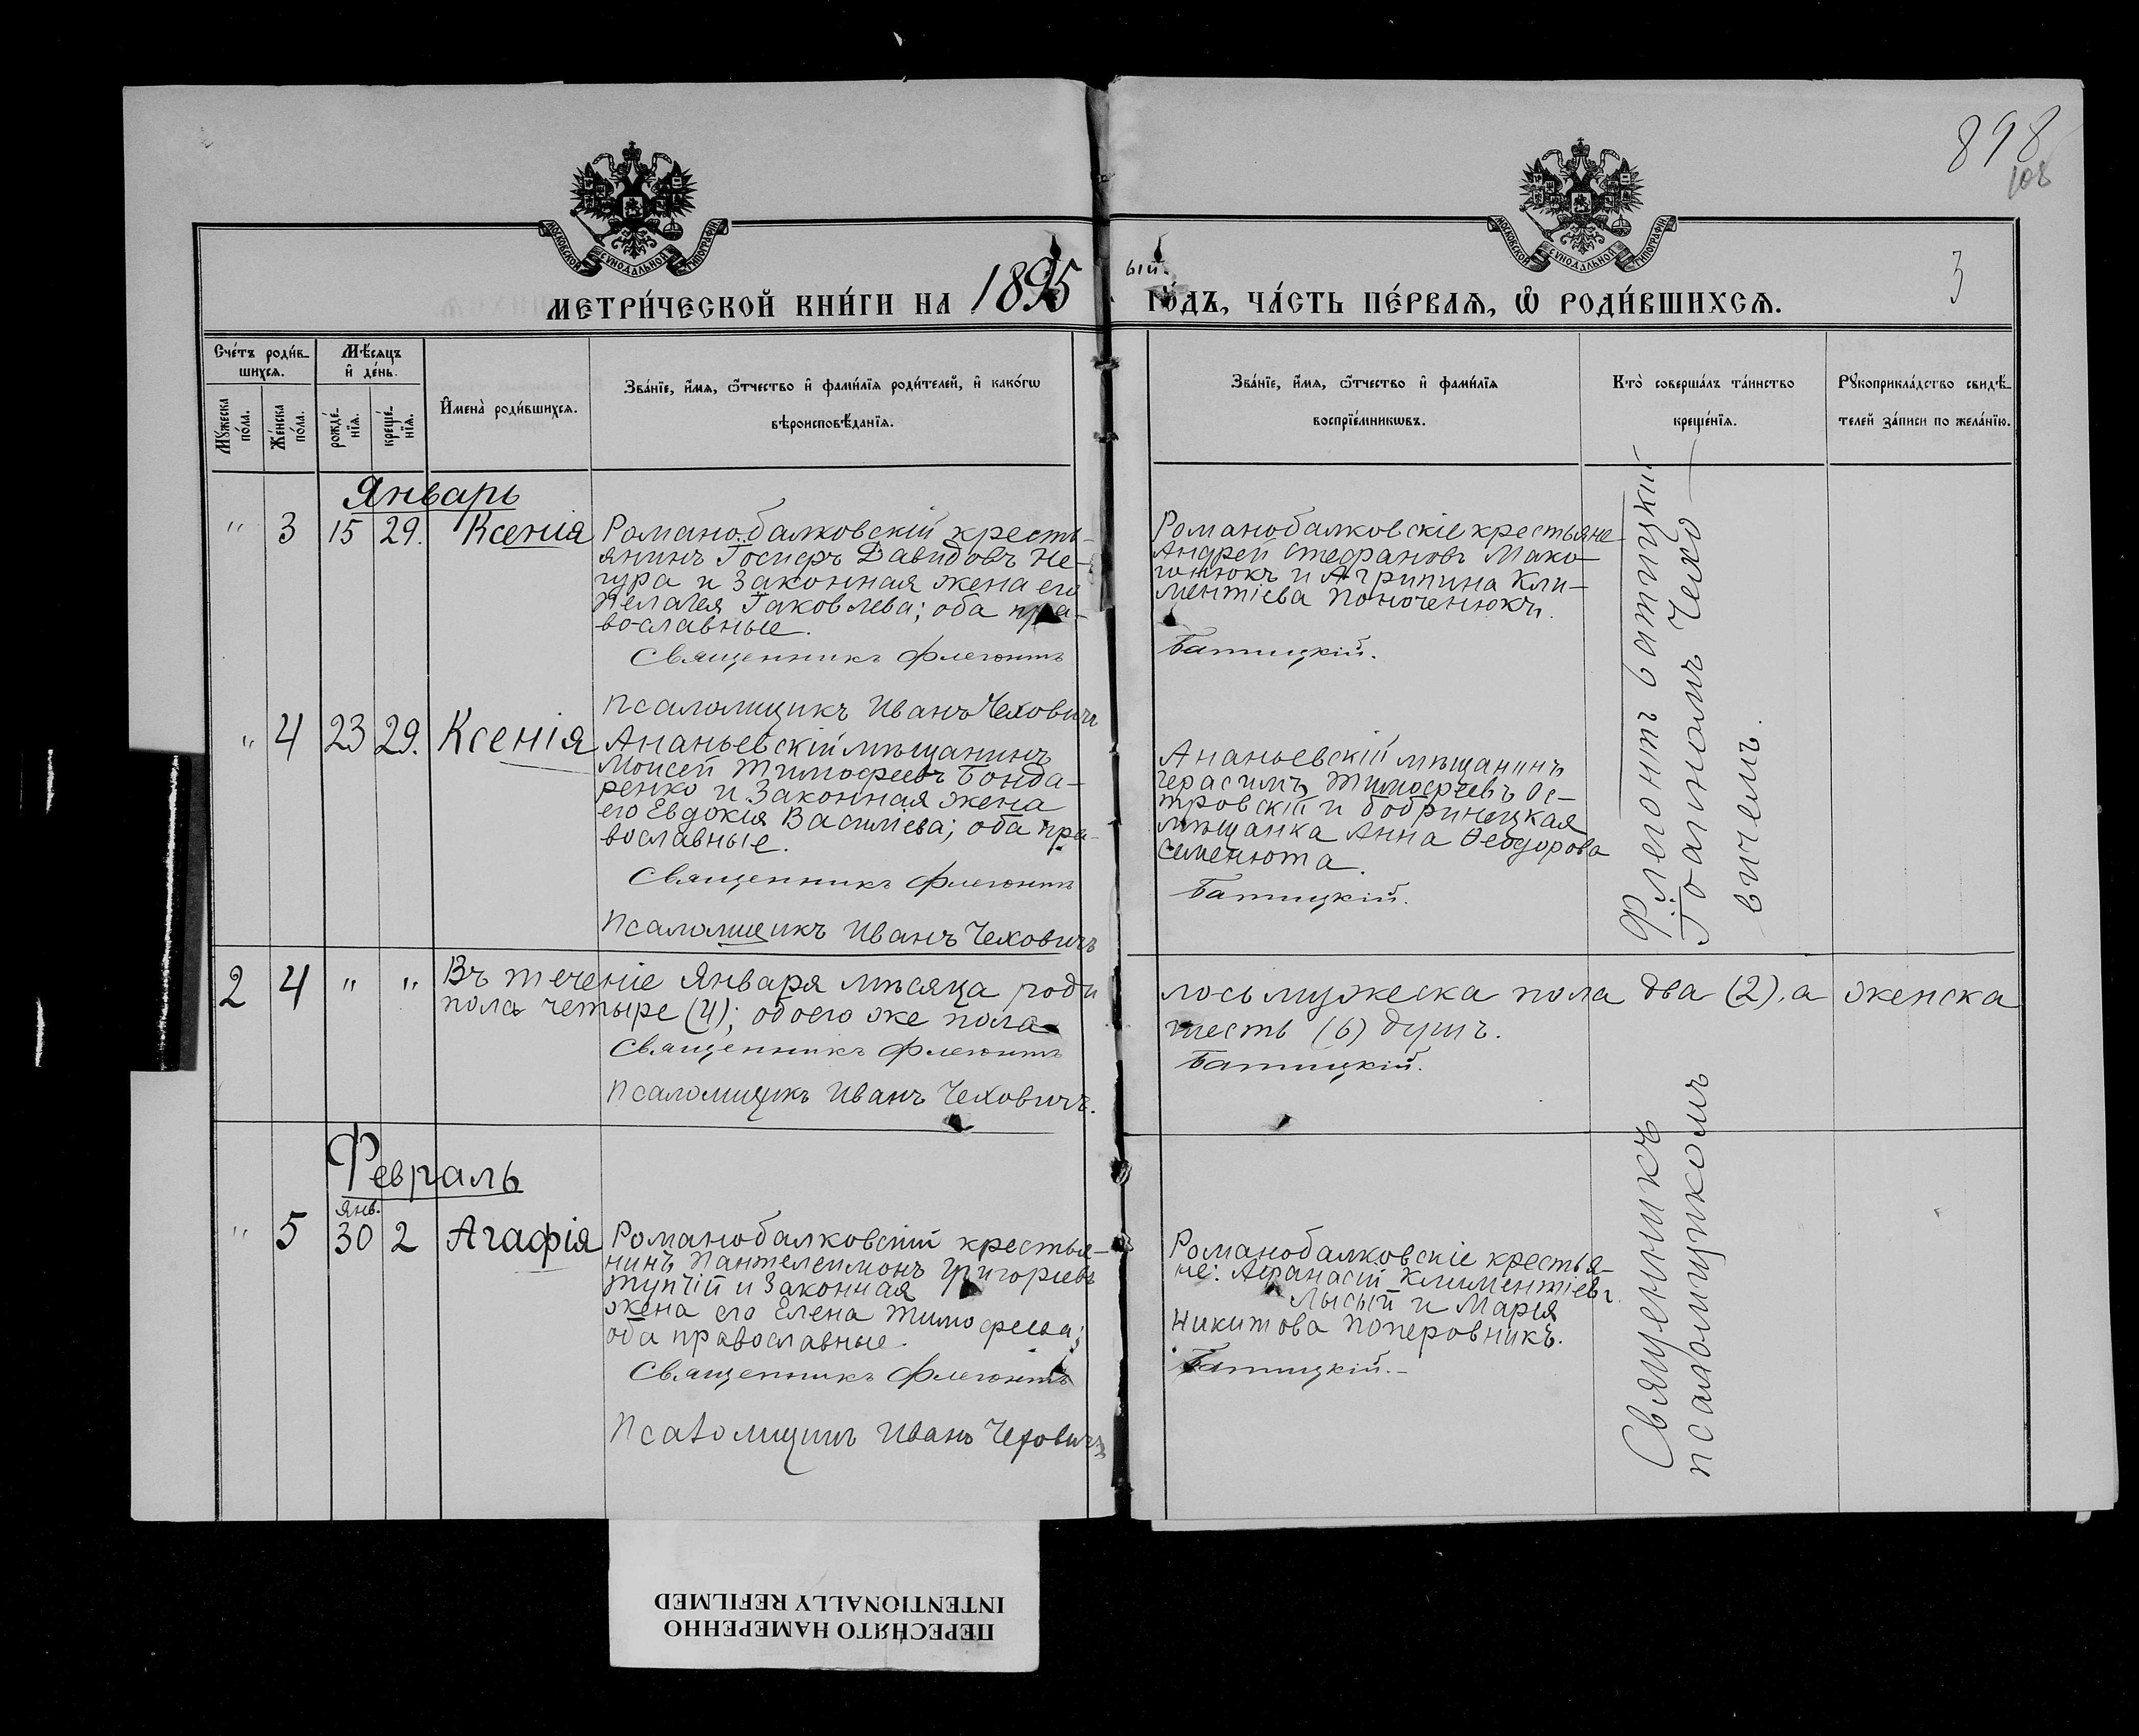 898
108
3
МОСКОВСКОЙ СѴНОДАЛЬНОЙ ТИПОГРАФІИ
МОСКОВСКОЙ СѴНОДАЛЬНОЙ ТИПОГРАФІИ
МЕТРИ́ЧЕСКОЙ КНИ́ГИ НА 1895
ый
ГО́ДЪ, ЧА́СТЬ ПЕ́РВАѦ, Ѽ РОДИ́ВШИХСѦ.
Сче́тъ роди́в-
шихсѧ.
Мѣ́сѧцъ
и҆ де́нь.
Му́жеска по́ла.
Же́нска по́ла.
рожде́-
нїѧ.
креще́-
нїѧ.
И҆мена̀ роди́вшихсѧ.
Зва́нїе, и҆́мѧ, ѻ҆́тчество и҆ фами́лїѧ роди́телей, и҆ како́гѡ
вѣроисповѣ́данїѧ.
Зва́нїе, и҆́мѧ, ѻ҆́тчество и҆ фами́лїѧ
воспрїе́мникѡвъ.
Кто̀ соверша́лъ та́инство
креще́нїѧ.
Рꙋкоприкла́дство свидѣ́-
телей за́писи по жела́нїю.
Январь
" 3 15 29. Ксенія
Романобалковскій кресть-
янинъ Іосифъ Давидовъ Не-
гура и законная жена его
Пелагея Іаковлева; оба пра-
вославные.
Священникъ Флегонтъ
Псаломщикъ Иванъ Чеховичъ
Романобалковскіе крестьяне
Андрей Стефановъ Мако-
гонюкъ и Агрипина Кли-
ментіева Поноченюкъ.
Батицкій.
" 4 23 29. Ксенія
Ананьевскій мѣщанинъ
Моисей Тимофеевъ Бонда-
ренко и законная жена
его Евдокія Василіева; оба пра-
вославные.
Священникъ Флегонтъ
Псаломщикъ Иванъ Чеховичъ
Ананьевскій мѣщанинъ
Герасимъ Тимофеевъ Ос-
тровскій и бобринецкая
мѣщанка Анна Ѳеодорова
Семенюта.
Батицкій.
2 4 " " Въ теченіе Января мѣсяца роди лось мужеска пола два (2), а женска
пола четыре (4); обоего же пола шесть (6) душъ.
Священникъ Флегонтъ Батицкій.
Псаломщикъ Иванъ Чеховичъ.
Февраль
Янв.
" 5 30 2 Агафія
Романобалковскій крестья-
нинъ Пантелеимонъ Григорьевъ
Тупчій и законная
жена его Елена Тимофеева;
оба православные.
Священникъ Флегонтъ
Псаломщикъ Иванъ Чеховичъ
Романобалковскіе крестья-
не: Афанасій Климентіевъ
Лысый и Марія
Никитова Поперовникъ.
Батицкій.-
Священникъ Флегонтъ Батицкій
псаломщикомъ Іоанномъ Чехо-
вичемъ.
ПЕРЕСНЯТО НАМЕРЕННО
INTENTIONALLY REFILMED